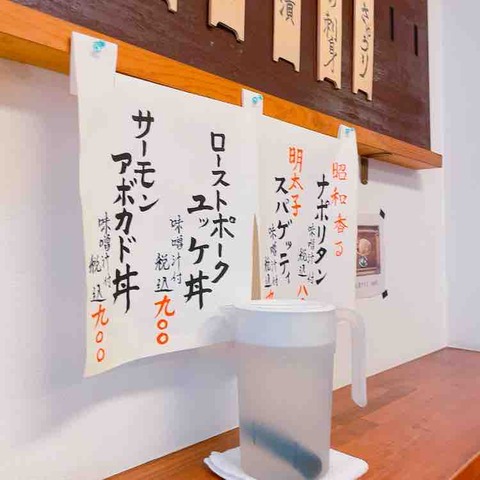 漬
刺身
きゅうり
昭和香る
ナポリタン
味噌汁付
税込 八
明太子
スパゲッティ
味噌汁付
税込 九
ローストポーク
ユッケ丼
味噌汁付
税込 九〇〇
サーモン
アボカド丼
味噌汁付
税込 九〇〇